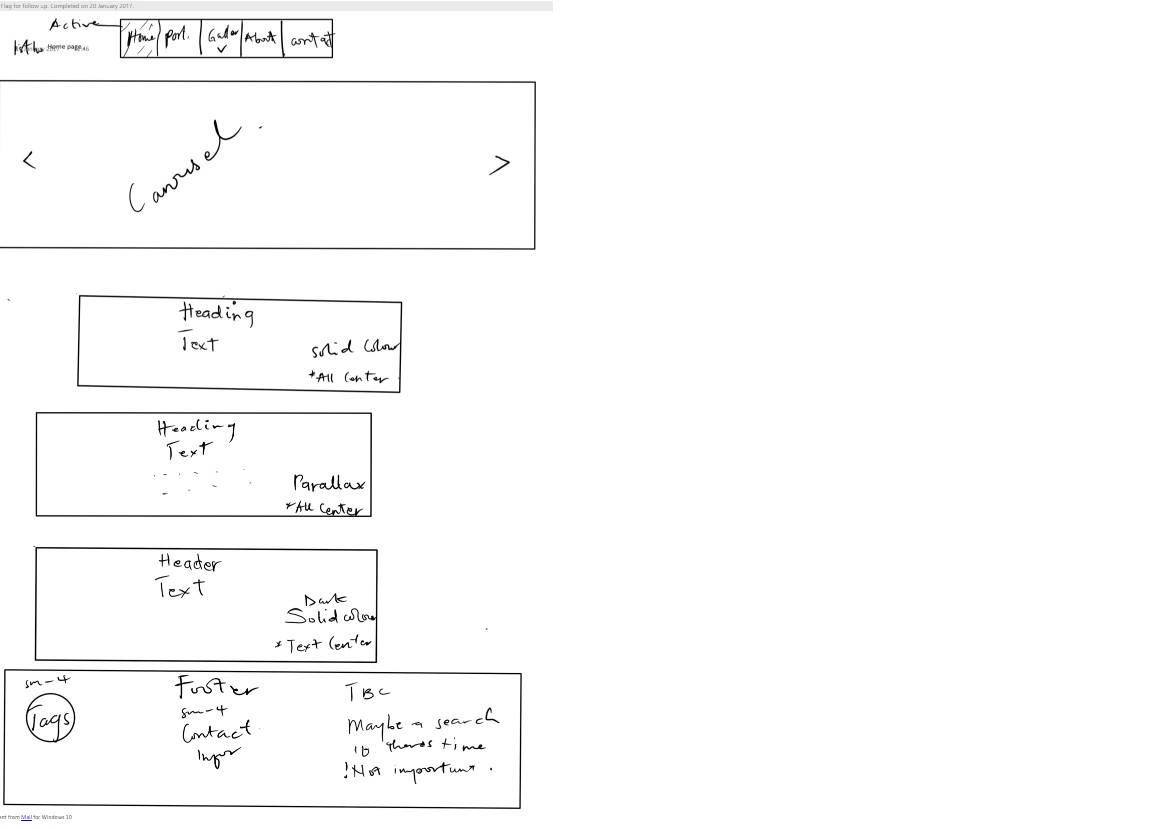 Flag for follow up. Completed on 20 January 2017.
Active
Home Port. About
Home page
Carousel.
<
>
Heading
Text
Solid Colour
*All Center
Heading
Text
Parallax
*All Center
Header
Text
Dark
Solid colour
*Text Center
sm-4
Tags
Footer
sm-4
Contact
Infor
TBC
Maybe a search
if theres time
!Not important.
Sent from Mail for Windows 10